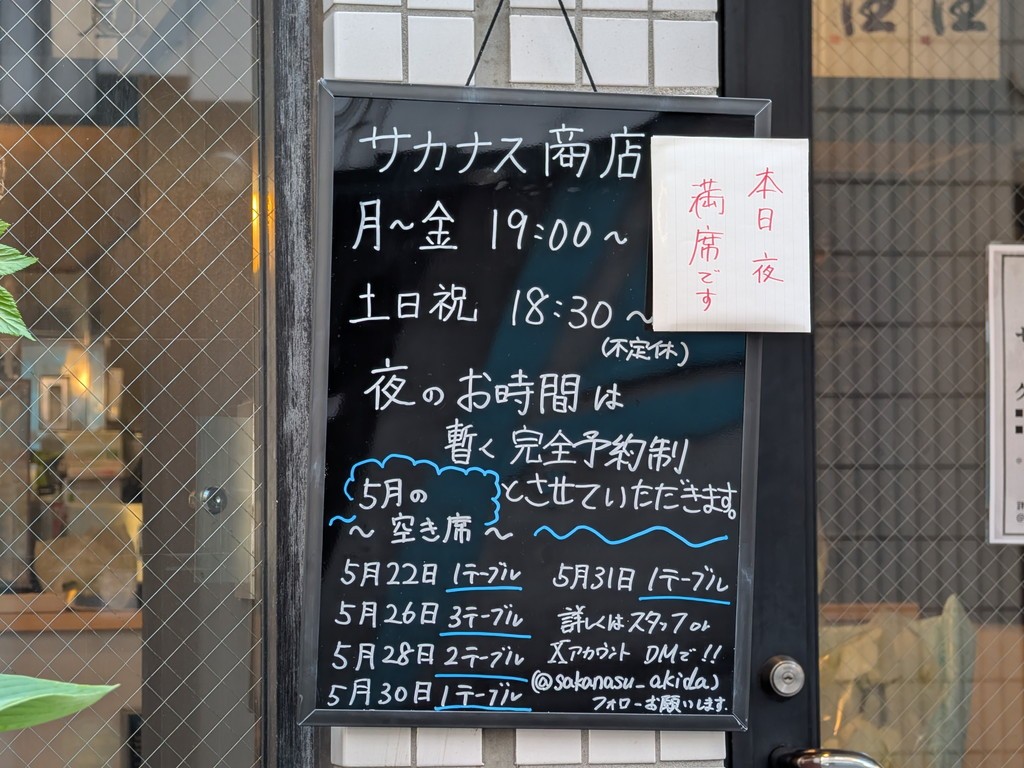 サカナス商店
月〜金 19:00〜
土日祝 18:30〜
(不定休)
夜のお時間は
暫く完全予約制
とさせていただきます。
5月の
〜空き席〜
5月22日 1テーブル
5月26日 3テーブル
5月28日 2テーブル
5月30日 1テーブル
5月31日 1テーブル
詳しくはスタッフor
Xアカウント DMで!!
(@sakanasu_akida)
フォローお願いします。
本日 夜
満席です